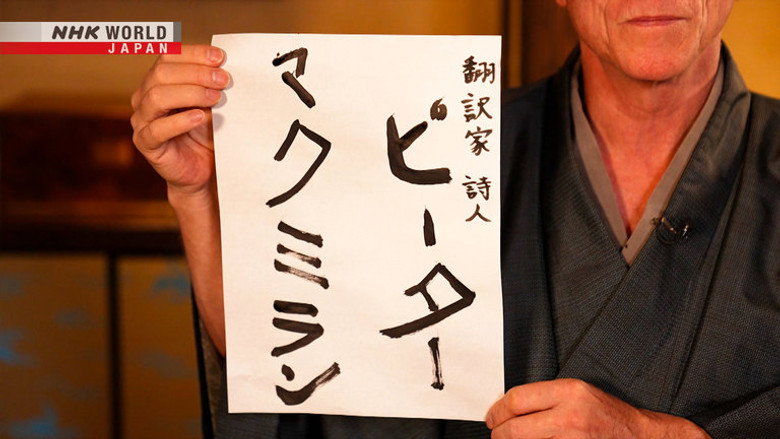 NHK WORLD
JAPAN
翻訳家 詩人
ピーター
マクミラン